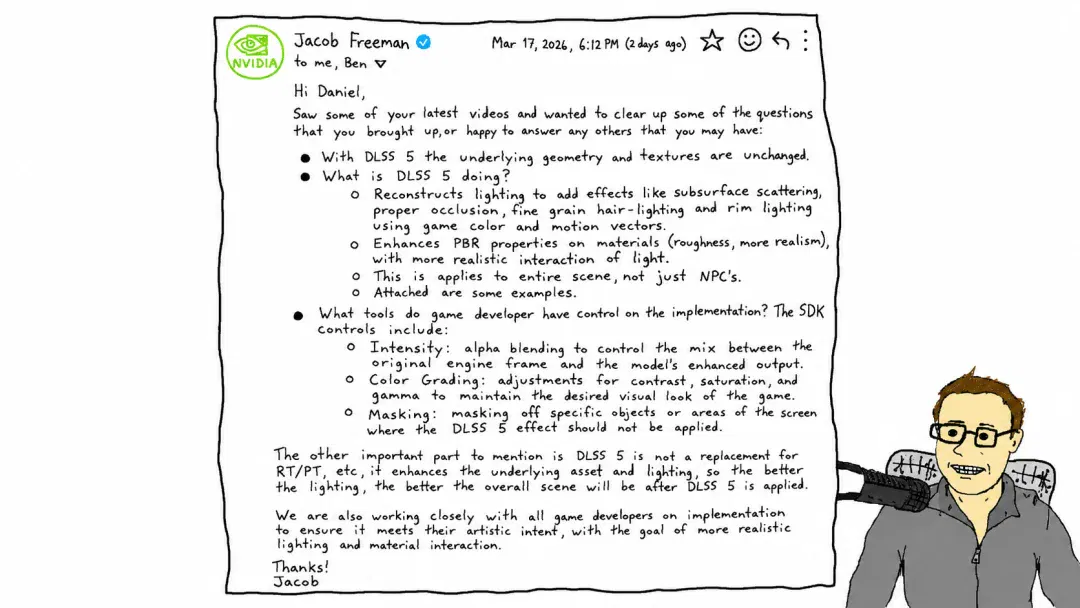 NVIDIA
Jacob Freeman
Mar 17, 2026, 6:12 PM (2 days ago)
to me, Ben
Hi Daniel,
Saw some of your latest videos and wanted to clear up some of the questions
that you brought up, or happy to answer any others that you may have:
● With DLSS 5 the underlying geometry and textures are unchanged.
● What is DLSS 5 doing?
○ Reconstructs lighting to add effects like subsurface scattering,
proper occlusion, fine grain hair-lighting and rim lighting
using game color and motion vectors.
○ Enhances PBR properties on materials (roughness, more realism),
with more realistic interaction of light.
○ This is applies to entire scene, not just NPC's.
○ Attached are some examples.
● What tools do game developer have control on the implementation? The SDK
controls include:
○ Intensity: alpha blending to control the mix between the
original engine frame and the model's enhanced output.
○ Color Grading: adjustments for contrast, saturation, and
gamma to maintain the desired visual look of the game.
○ Masking: masking off specific objects or areas of the screen
where the DLSS 5 effect should not be applied.
The other important part to mention is DLSS 5 is not a replacement for
RT/PT, etc, it enhances the underlying asset and lighting, so the better
the lighting, the better the overall scene will be after DLSS 5 is applied.
We are also working closely with all game developers on implementation
to ensure it meets their artistic intent, with the goal of more realistic
lighting and material interaction.
Thanks!
Jacob